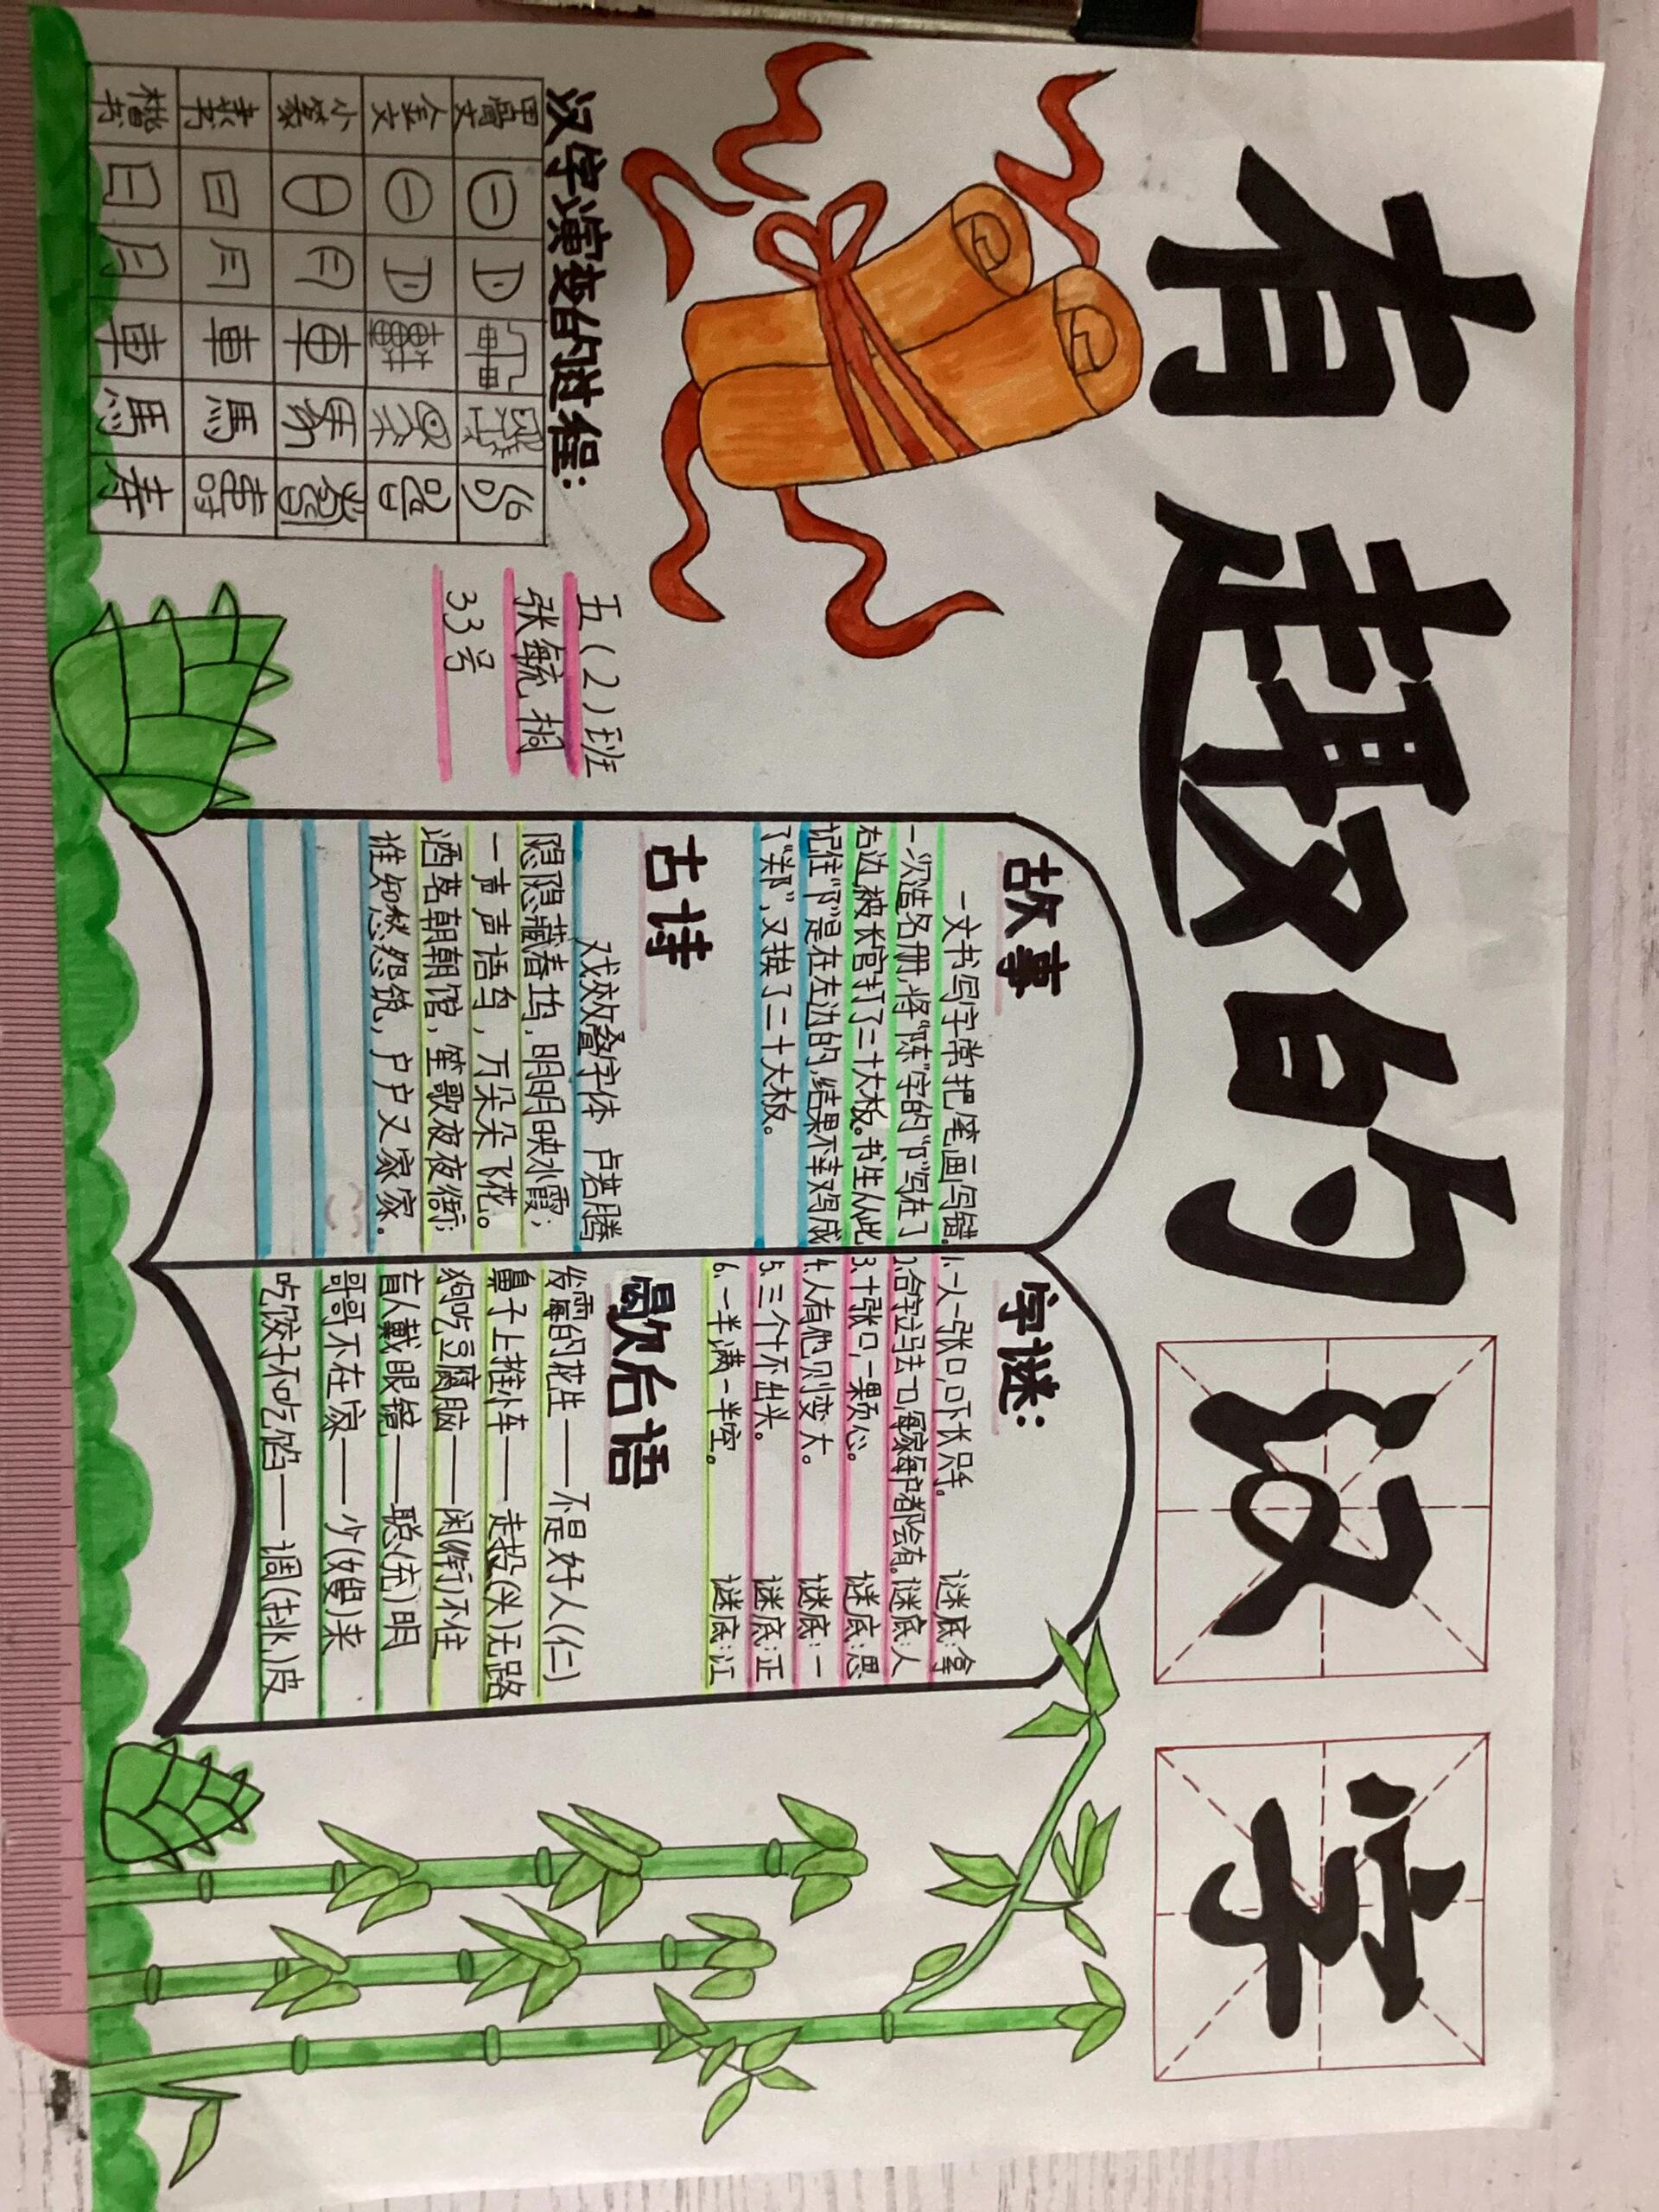 有趣的汉字
汉字演变的过程：
甲骨文
金文
小篆
隶书 日 月 車 馬 壽
楷书 日 月 車 馬 寿
五（2）班
张毓桐
33号
故事
一文书写字常把笔画写错。
一次造名册，将“陈”字的“阝”写在了
右边，被长官打了二十大板。书生从此
记住“阝”是在左边的，结果不幸又写成
了“郑”，又挨了二十大板。
古诗
戏效叠字体 卢若腾
隐隐藏春坞，明明映水霞；
一声声语鸟，万朵朵飞花。
酒茗朝朝馆，笙歌夜夜衙；
谁知愁怨筑，户户又家家．
字谜：
1.一人一张口，口下长只手。 谜底：拿
2.合字过马去了口，每家每户都会有。谜底：人
3.十张口，一颗心。 谜底：思
4.人有他则变大。 谜底：一
5.三个卜不出头。 谜底：正
6.一半满一半空。 谜底：江
歇后语
发霉的花生——不是好人（仁）
鼻子上推小车——走投（头）无路
狗吃豆腐脑——闲（衔）不住
盲人戴眼镜——聪（充）明
哥哥不在家——少（嫂）来
吃饺子不吃馅——调（挑）皮